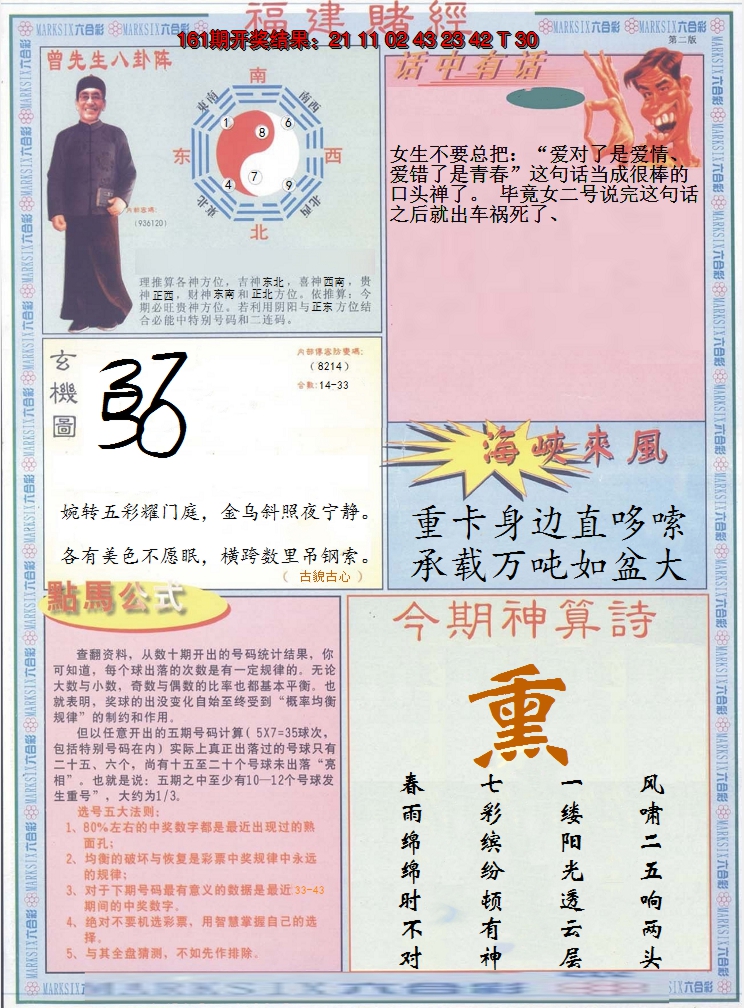 福建賭經
161期开奖结果：21 11 02 43 23 42 T 30
MARKSIX六合彩 MARKSIX六合彩 MARKSIX六合彩 MARKSIX六合彩
第二版
曾先生八卦阵
南
东南
南西
1
8
6
东
西
4
7
9
东北
北西
北
内部密碼：
（936120）
理推算各神方位，吉神东北，喜神西南，贵
神正西，财神东南和正北方位。依推算：今
期必旺贵神方位。若利用阴阳与正东方位结
合必能中特别号码和二连码。
话中有话
女生不要总把：“爱对了是爱情、
爱错了是青春”这句话当成很棒的
口头禅了。 毕竟女二号说完这句话
之后就出车祸死了、
玄機圖
内部傳密防密碼：
（8214）
合数：14-33
婉转五彩耀门庭，金乌斜照夜宁静。
各有美色不愿眠，横跨数里吊钢索。
（ 古貌古心 ）
海峽來風
重卡身边直哆嗦
承载万吨如盆大
點馬公式
查翻资料，从数十期开出的号码统计结果，你
可知道，每个球出落的次数是有一定规律的。无论
大数与小数，奇数与偶数的比率也都基本平衡。也
就表明，奖球的出没变化自始至终受到“概率均衡
规律”的制约和作用。
但以任意开出的五期号码计算（5X7=35球次，
包括特别号码在内）实际上真正出落过的号球只有
二十五、六个，尚有十五至二十个号球未出落“亮
相”。也就是说：五期之中至少有10—12个号球发
生重号”，大约为1/3。
选号五大法则：
1、80%左右的中奖数字都是最近出现过的熟
面孔；
2、均衡的破坏与恢复是彩票中奖规律中永远
的规律；
3、对于下期号码最有意义的数据是最近 33-43
期间的中奖数字。
4、绝对不要机选彩票，用智慧掌握自己的选
择。
5、与其全盘猜测，不如先作排除。
今期神算詩
熏
风啸二五响两头
一缕阳光透云层
七彩缤纷顿有神
春雨绵绵时不对